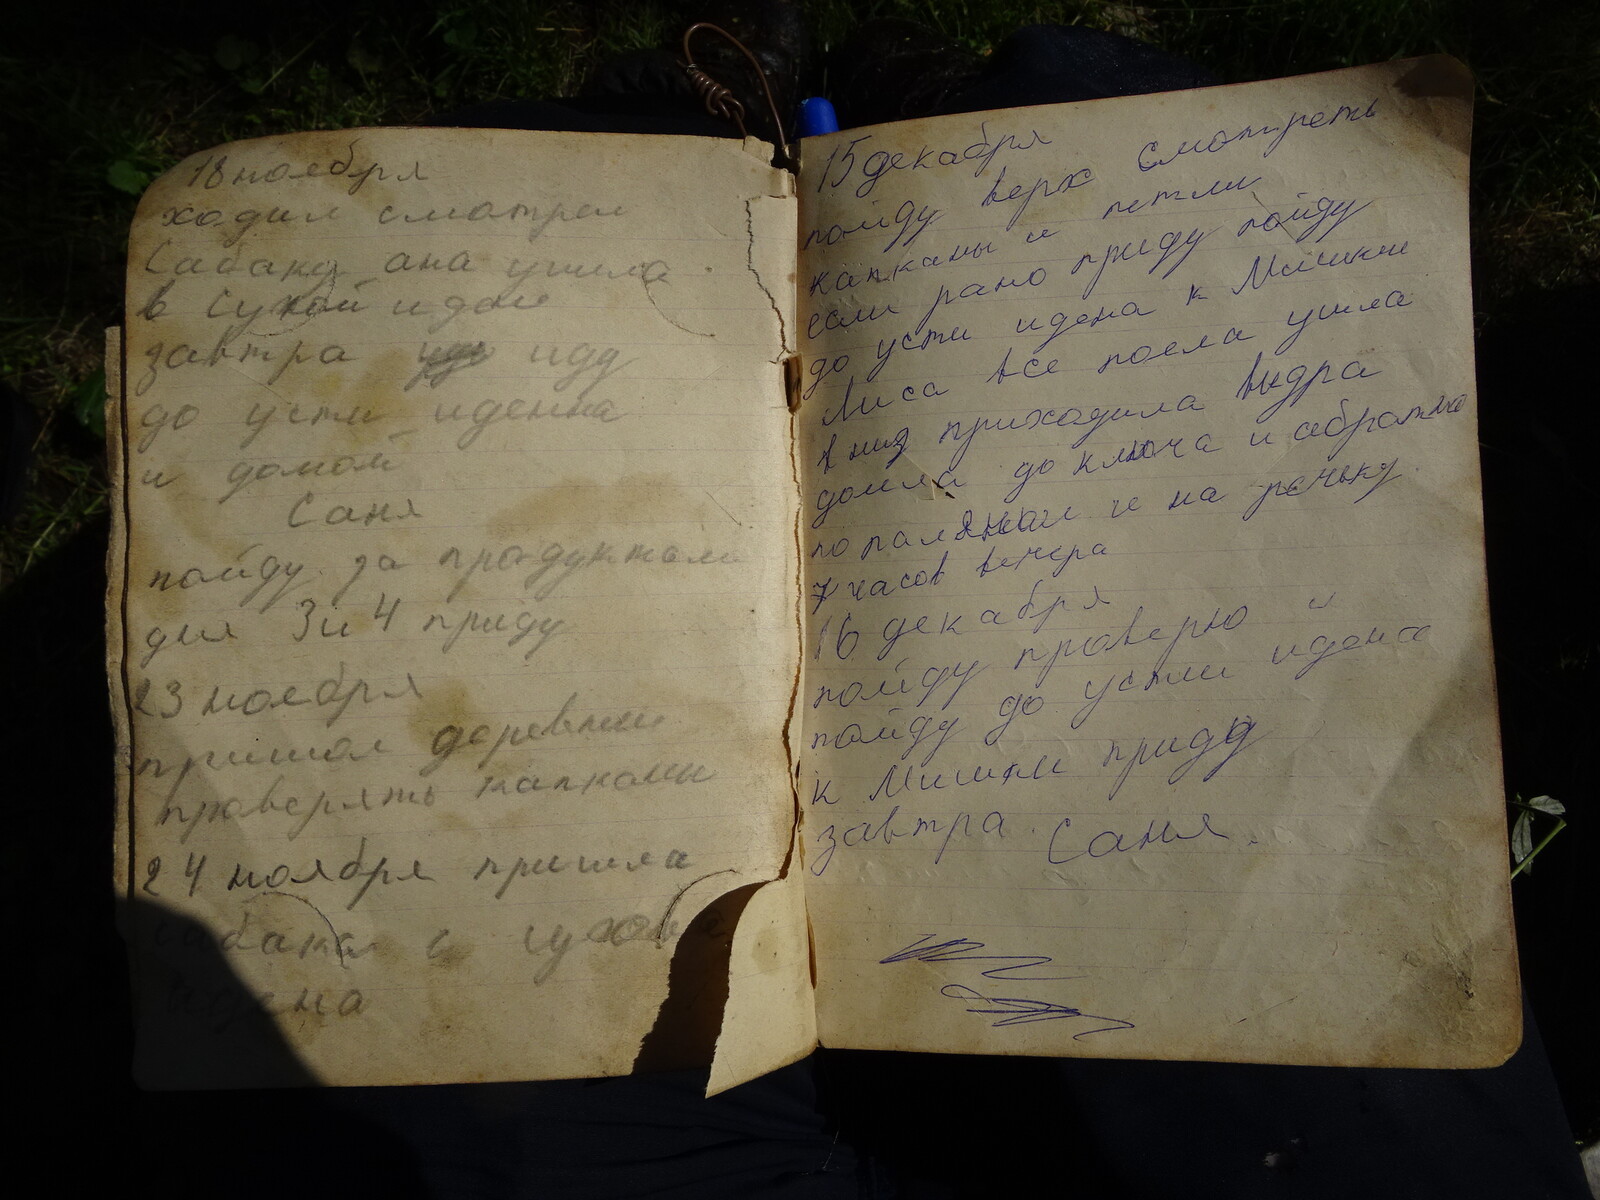 18 ноября
ходил смотрел
Сабаку ана ушла
в Сухой идем
завтра иду
до усти идена
и домой
Саня
пойду за продуктами
дня 3 и 4 приду
23 ноября
пришол деревни
проверять капканы
24 ноября пришла
сабака с сухова
идена
15 декабря
пойду верх смотреть
капканы и петли
если рано приду пойду
до усти идена к Мишки
Лиса все поела ушла
в низ приходила выдра
дошла до ключа и абратно
по палянам и на речку.
7 часов вечера
16 декабря
пойду проверю и
пойду до усти идена
к Мишки приду
завтра. Саня.